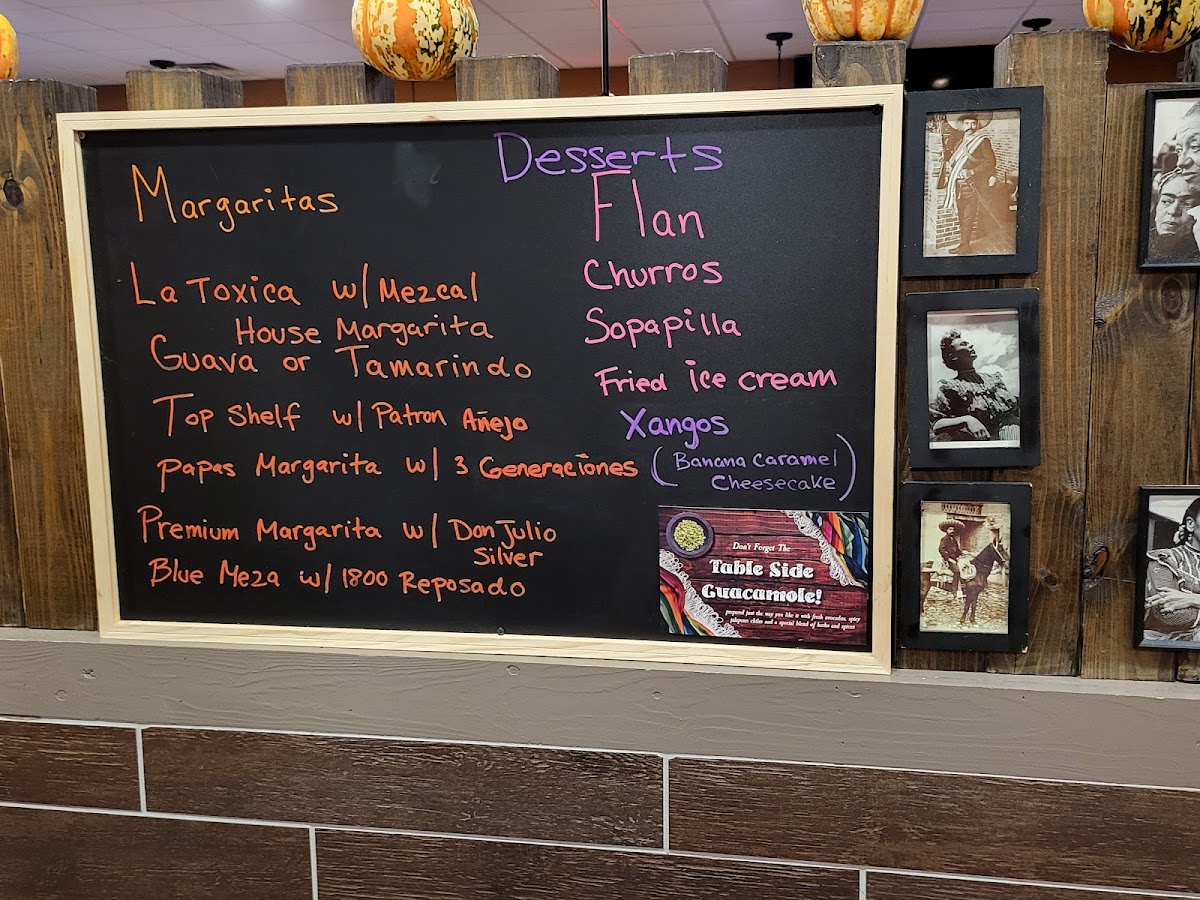 Margaritas
La Toxica w/ Mezcal
House Margarita
Guava or Tamarindo
Top Shelf w/ Patron Añejo
Papas Margarita w/ 3 Generaciones
Premium Margarita w/ Don Julio
Silver
Blue Meza w/ 1800 Reposado
Desserts
Flan
Churros
Sopapilla
Fried ice cream
Xangos
(Banana Caramel
Cheesecake)
Don't Forget The
Table Side
Guacamole!
prepared just the way you like it with fresh avocados, spicy
jalapeno chiles and a special blend of herbs and spices